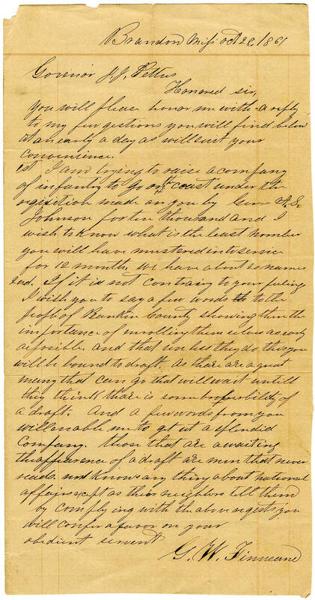 Brandon Miss Oct 28 1861
Governor J J Pettus
Honored sir,
you will please honor me with a reply
to my few questions you will find below
at an early a day as will suit your
convenience.
1st I am trying to raise a company
of infantry to go on coast under the
requisition made on you by Gen A. S.
Johnson for ten thousand and I
wish to know what is the least number
you will have mustered into service
for 12 months, we have about 50 names
2ed. If it is not contrary to your feelings
I wish you to say a few words to the
people of Rankin County showing them the
importance of enrolling themselves as early
as possible and that unless they do this you
will be bound to draft. As there are a great
many that can go that will wait untill
they think there is some probability of
a draft. And a few words from you
will enable me to get up a splendid
company. those that are awaiting
the appearance of a draft are men that never
reads, nor knows any thing about national
affairs except as their neighbors tell them
by complying with the above requests you
will confer a favor on your
obedient servent
G. W.